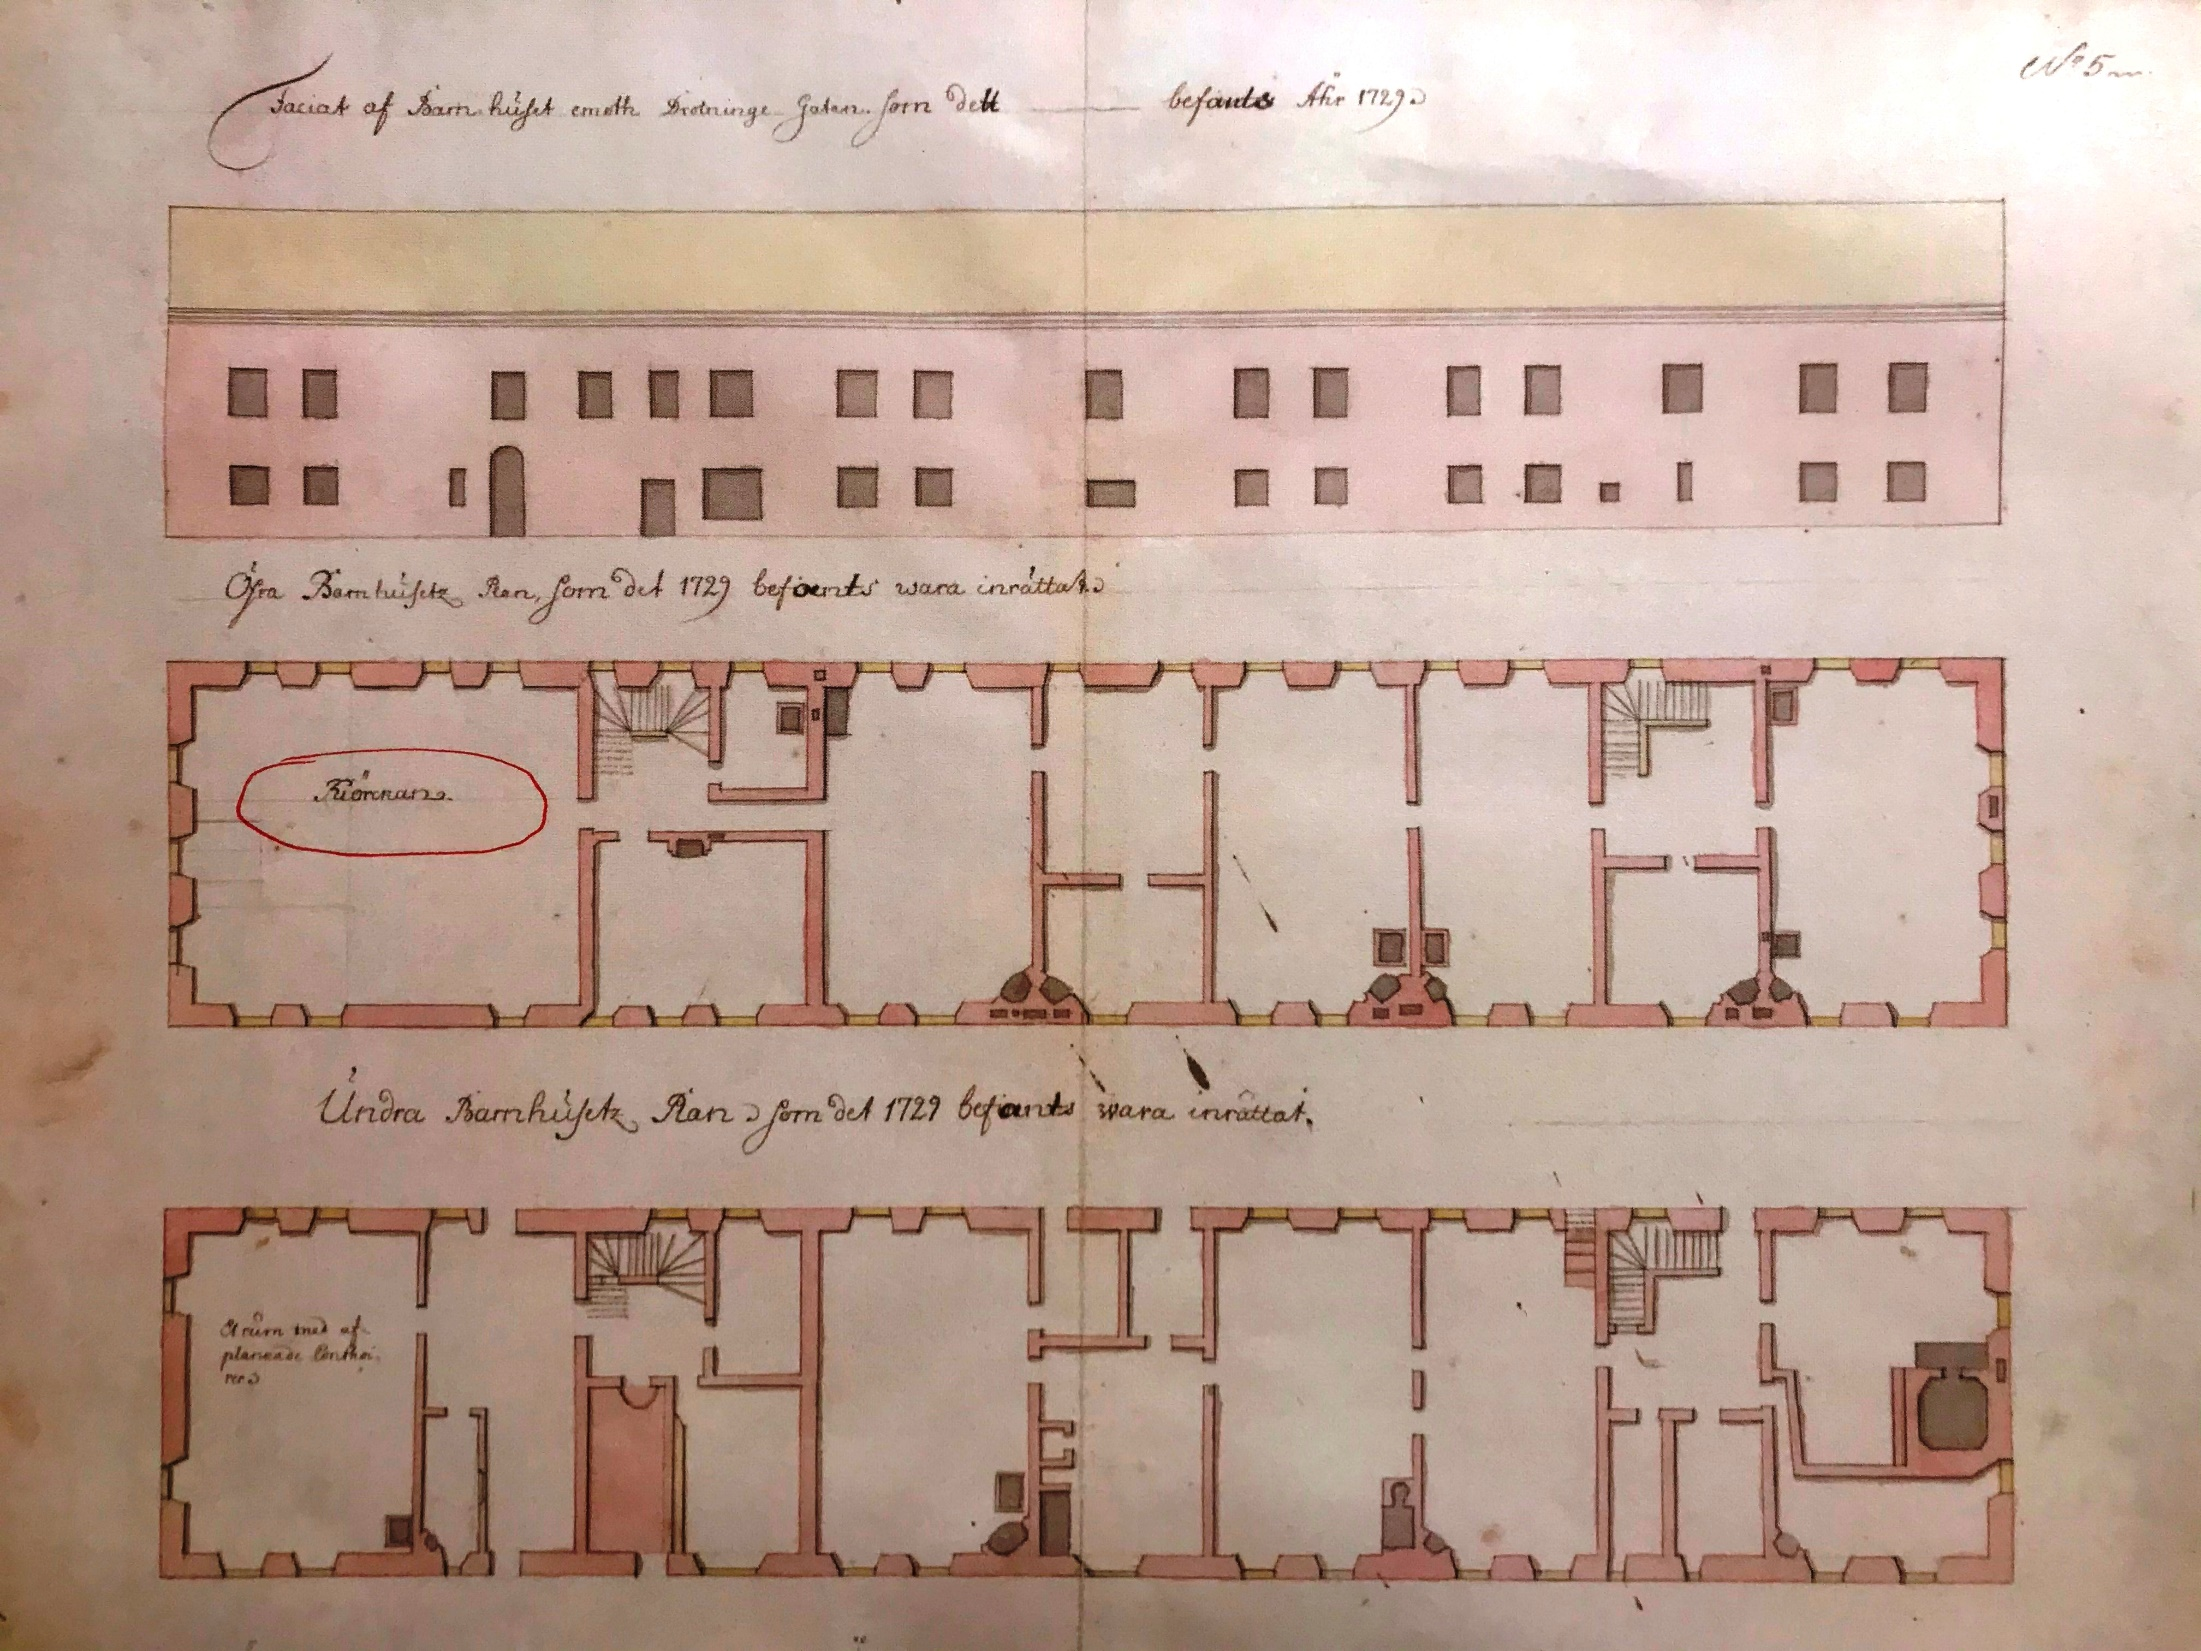 No 5
Faciat af Barnhüset emoth Drotninge Gatan som dett befants Åhr 1729
Öfra Barnhüsetz Plan, som det 1729 befants wara inrättat
Kiörckan.
Ündra Barnhüsetz Plan som det 1729 befants wara inrättat.
Et rüm med af-
planeade Conthoi-
rer